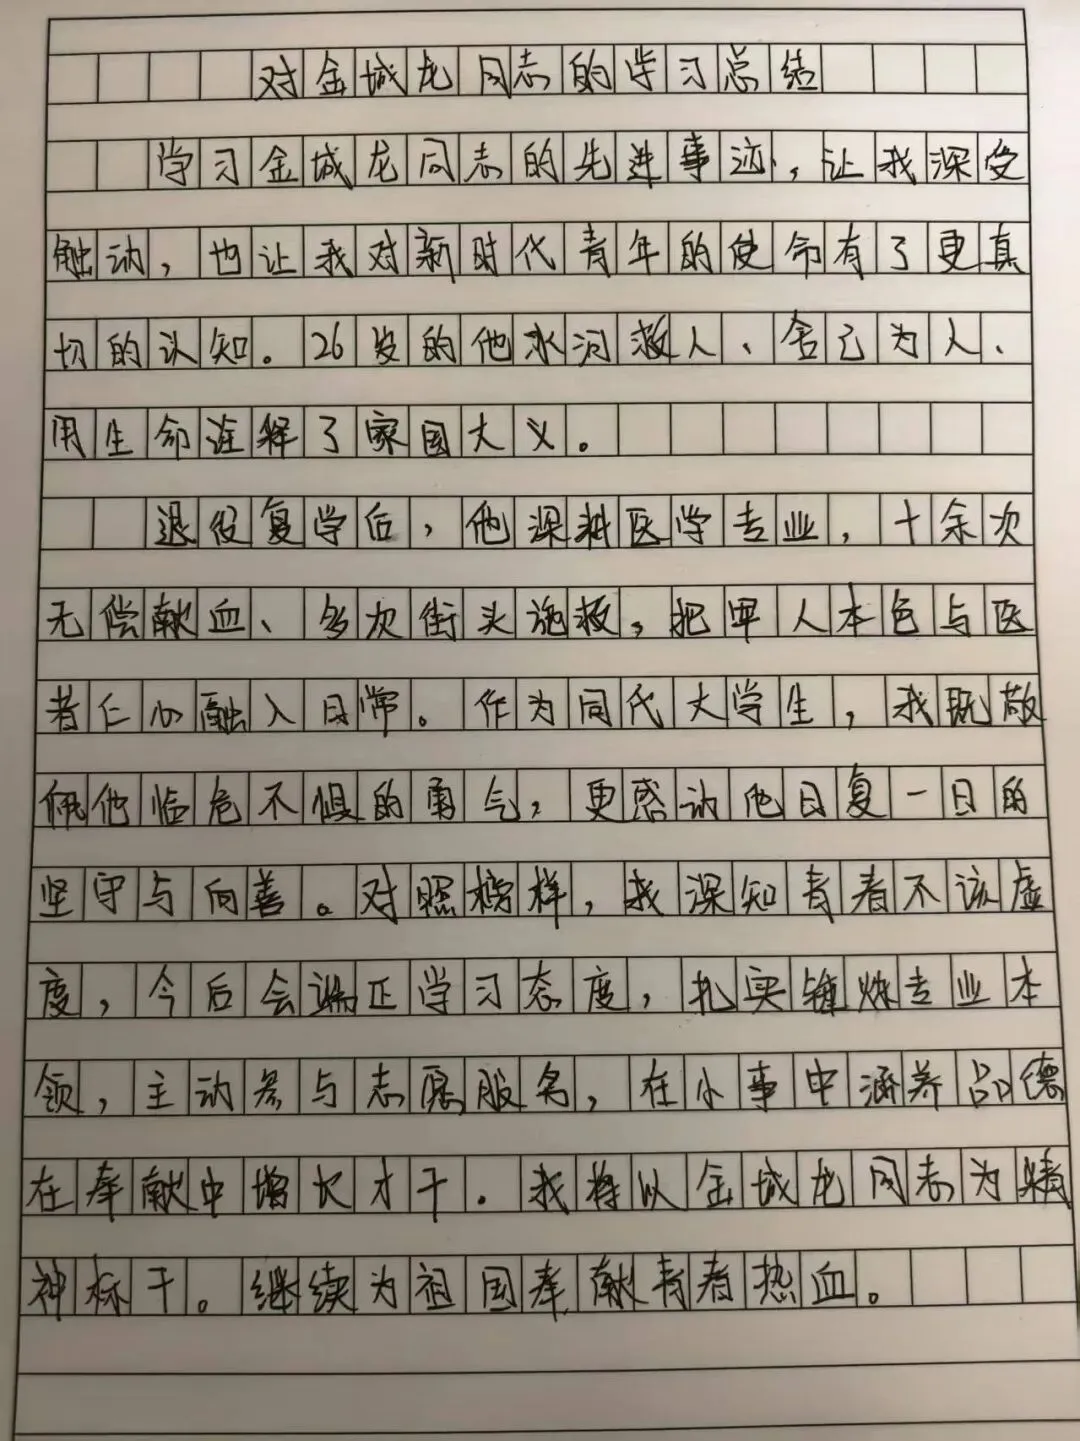 对金城龙同志的学习总结
学习金城龙同志的先进事迹，让我深受
触动，也让我对新时代青年的使命有了更真
切的认知。26岁的他冰河救人、舍己为人、
用生命诠释了家国大义。
退役复学后，他深耕医学专业，十余次
无偿献血、多次街头施救，把军人本色与医
者仁心融入日常。作为同代大学生，我既敬
佩他临危不惧的勇气，更感动他日复一日的
坚守与向善。对照榜样，我深知青春不该虚
度，今后会端正学习态度，扎实锤炼专业本
领，主动参与志愿服务，在小事中涵养品德
在奉献中增长才干。我将以金城龙同志为精
神标干。继续为祖国奉献青春热血。